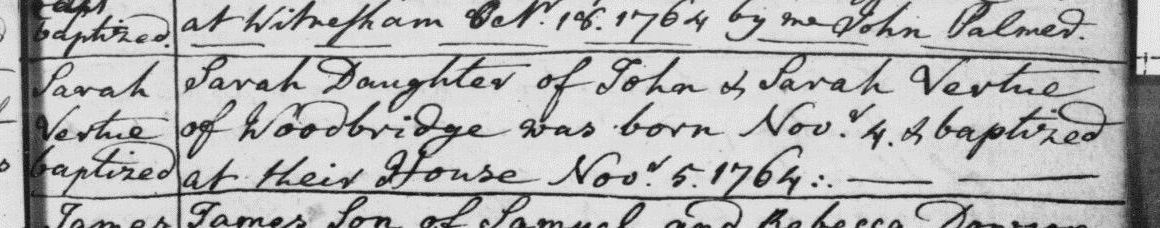 baptized. at Witnesham Octr. 18. 1764 by me John Palmer.
Sarah Sarah Daughter of John & Sarah Vertue
Vertue of Woodbridge was born Novr. 4. & baptized
baptized at their House Novr. 5. 1764:.
James James Son of Samuel and Rebecca